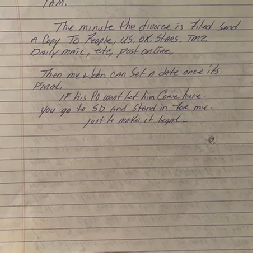 I AM.
The minute the divorce is filed send
A copy To People, US, OK, Stars, TMZ
Daily mail, etc, post online.
Then my can set A date once its
Final.
If his PO wont let him come here
you go to SD and stand in for me.
just to make it legal